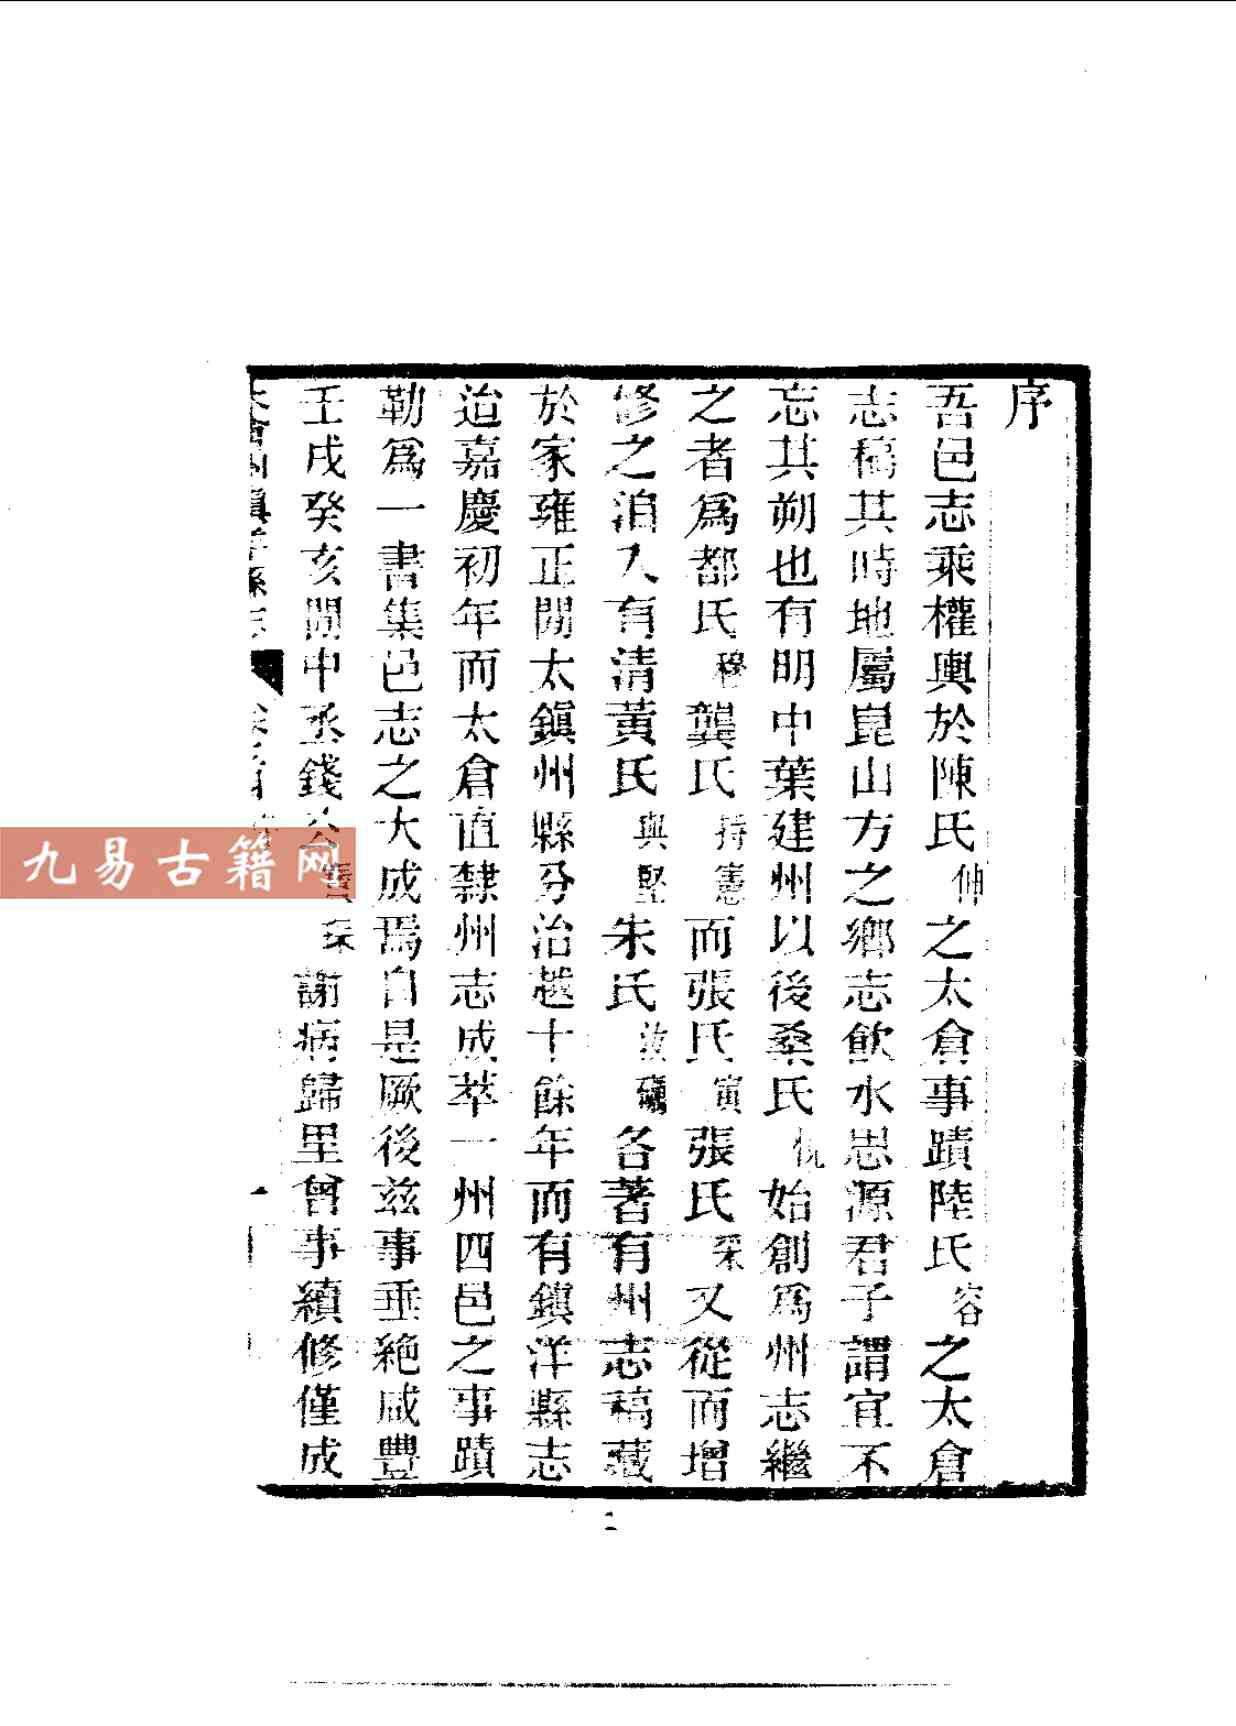 序
吾邑志乘權輿於陳氏伸之太倉事蹟陸氏容之太倉
志稿其時地屬崑山方之鄉志飲水思源君子謂宜不
忘其朔也有明中葉建州以後桑氏悅始創爲州志繼
之者爲都氏穆龔氏持憲而張氏寅張氏采又從而增
修之洎入有清黃氏與堅朱氏汝礪各著有州志稿藏
於家雍正閒太鎭州縣分治越十餘年而有鎭洋縣志
迨嘉慶初年而太倉直隸州志成萃一州四邑之事蹟
勒爲一書集邑志之大成焉自是厥後兹事垂絕咸豐
壬戌癸亥閒中丞錢公寶琛謝病歸里曾事續修僅成
鎭洋縣志
九易古籍网